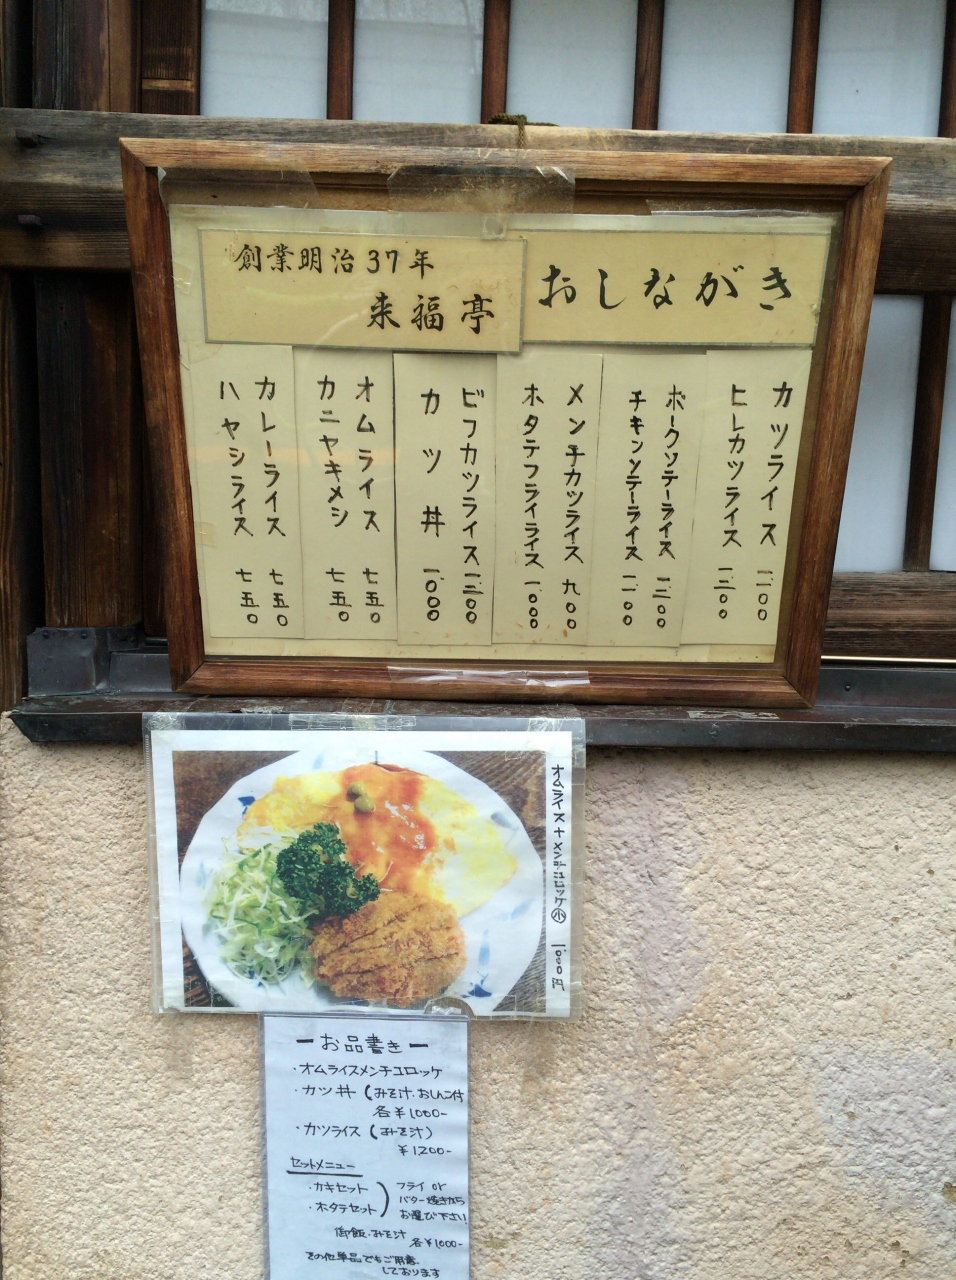 おしながき
創業明治37年
来福亭
カツライス 一二〇〇
ヒレカツライス 一三〇〇
ポークソテーライス 一三〇〇
チキンソテーライス 一二〇〇
メンチカツライス 九〇〇
ホタテフライライス 一、〇〇〇
ビフカツライス 一三〇〇
カツ丼 一、〇〇〇
オムライス 七五〇
カニヤキメシ 七五〇
カレーライス 七五〇
ハヤシライス 七五〇
オムライス+メンチコロッケ㊥ 1000円
ーお品書きー
・オムライスメンチコロッケ
・カツ丼(みそ汁.おしんこ付
各¥1000-
・カツライス(みそ汁)
¥1200-
セットメニュー
・カキセット
・ホタテセット
フライor
バター焼きから
お選び下さい
御飯.みそ汁
各¥1000-
その他単品でもご用意
しております